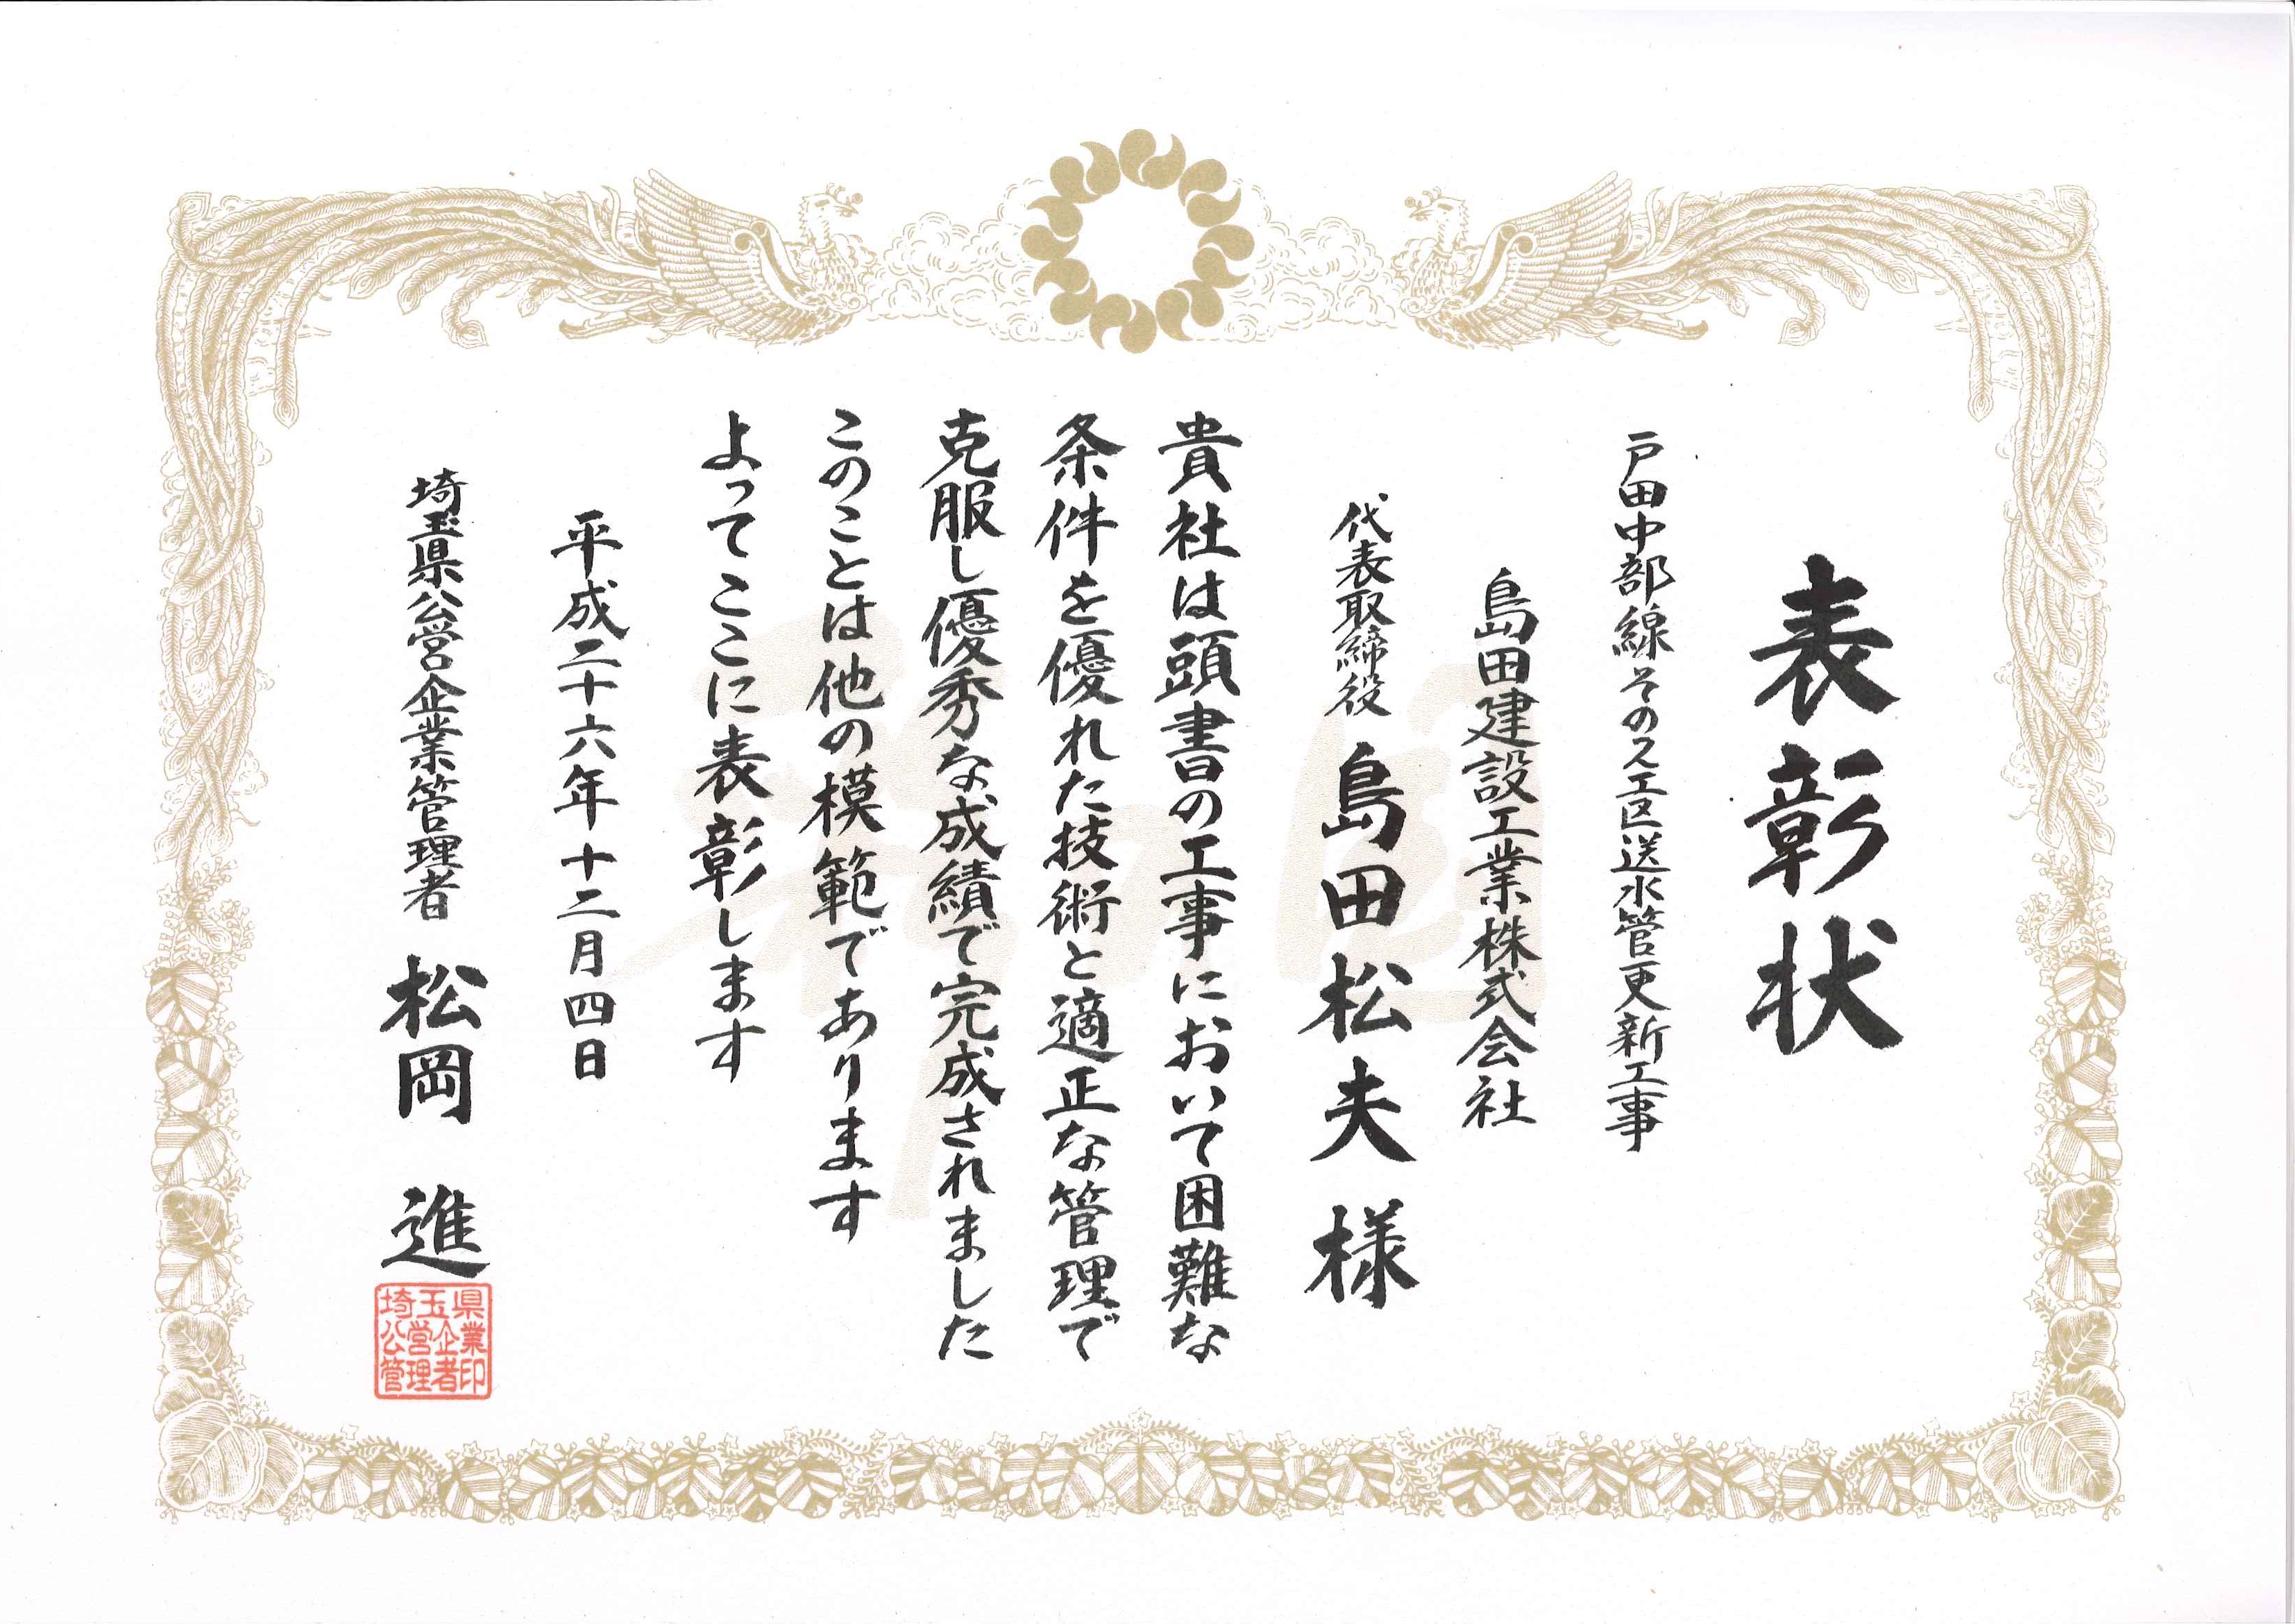 表彰状
戸田中部線その２工区送水管更新工事
島田建設工業株式会社
代表取締役 島田松夫様
貴社は頭書の工事において困難な
条件を優れた技術と適正な管理で
克服し優秀な成績で完成されました
このことは他の模範であります
よってここに表彰します
平成二十六年十二月四日
埼玉県公営企業管理者 松岡 進
埼玉県
公営企業
管理者印